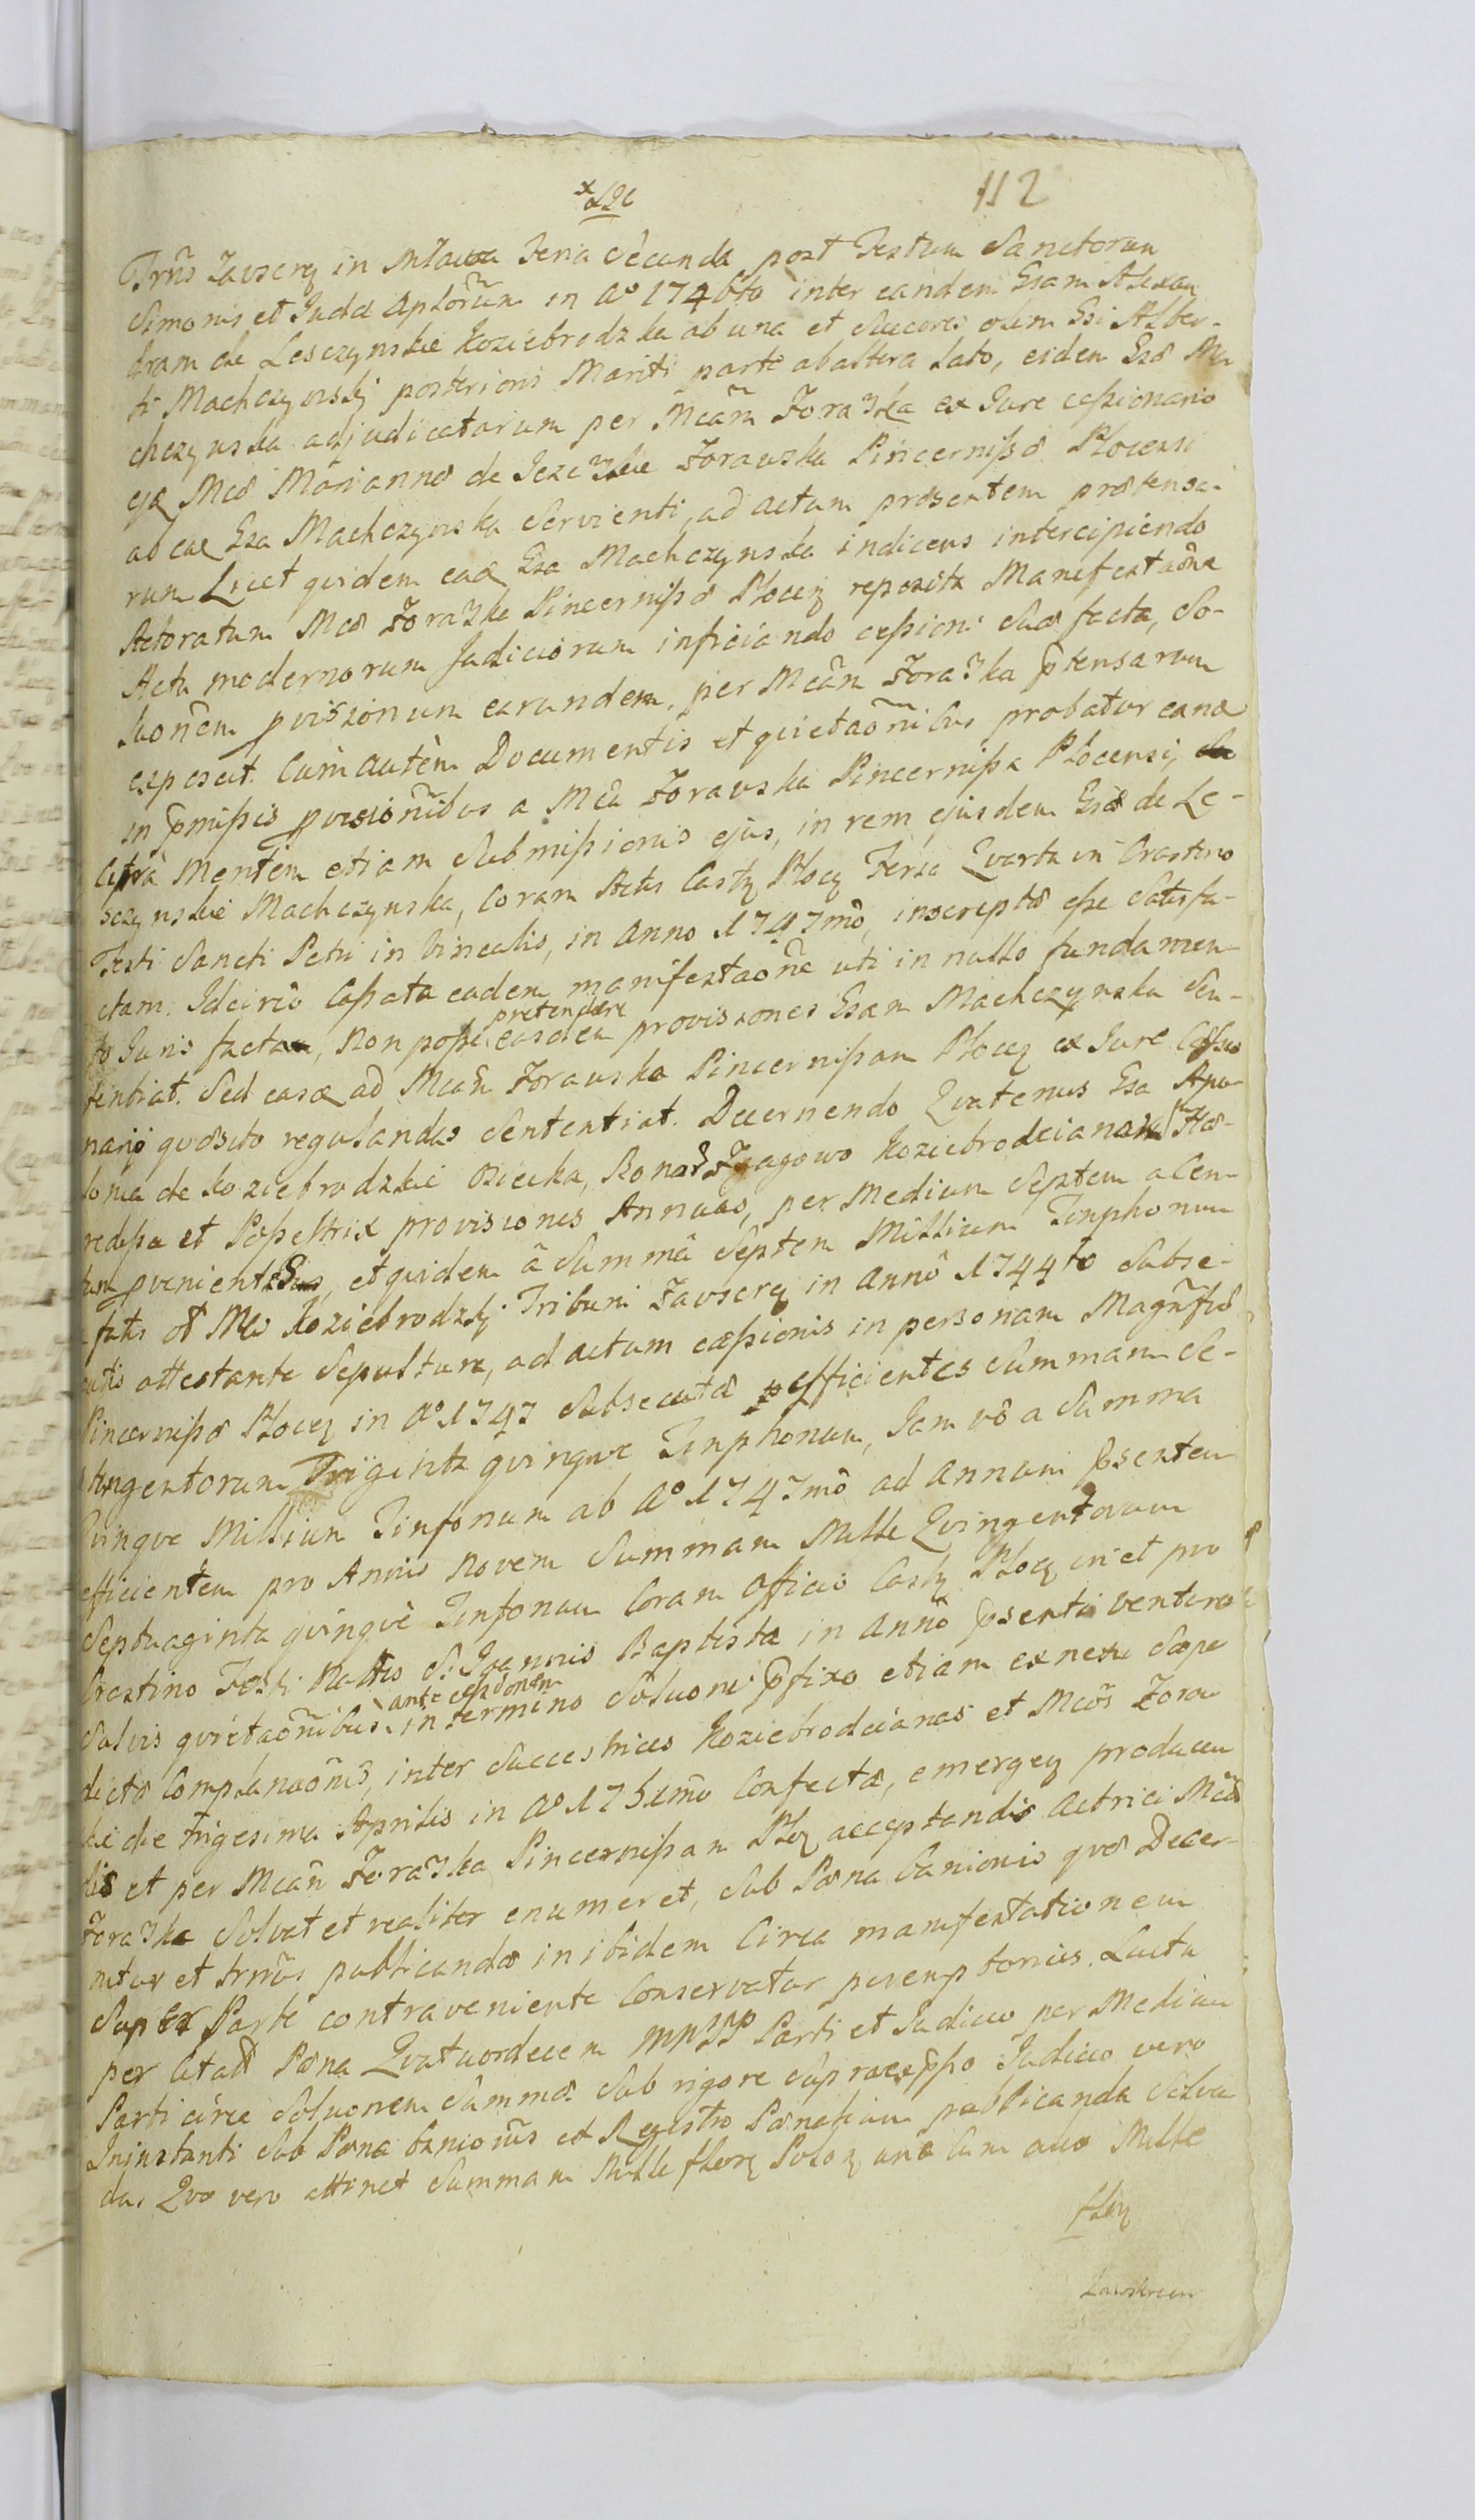 112
Trris Zavscrq in Mlawa Feria Secunda post Festum Sanctorum
Simonis et Judæ Aplorum in Aº 1746to inter eandem Gsam Alexan
dram de Lesczynskie Koziebrodzka ab una et Succores olim Gsi Alber-
ti Machczynskj posterioris Mariti parte ab altera lato, eidem Gsæ Ma
chczynska adjudicatarum per Mcam Zorawska ex Jure cessionario
Mcæ Mariannæ de Jezewskie Zorawska Pincernissæ Plocensi
ab eaq Gsa Machczynska Servienti, ad actum præsentem prætensa-
rum Licet quidem eaq Gsa Machczynska indicens intercipiendo
Actoratum Mcæ Zorawska Pincernissæ Plocen reposita Manifestaone
Acta modernorum Judiciorum inficiando cessioni Suæ facta, So-
luonem pvisionum earundem, per Mcam Zorawska ptensarum
exposcit. Cum autem Documentis et quietaonibus probatur eand
in pmissis pvisionibus a Mca Zorawska Pincernissa Plocensi
Citra Mentem etiam Submissionis ejus, in rem ejusdem Gsæ de Le-
sczynskie Machczynska, Coram Actis Castr Plocq Feria Quarta in Crastino
Festi Sancti Petri in Vinculis, in Anno 1747mo, inscriptæ esse Satisfa-
ctam. Idcirco Cassata eadem manifestaone uti in nullo fundamen-
to Juris facta, Non posse easdem pretendere provisiones Gsam Machczynska Sen-
tentiat. Sed easq ad Mcam Zorawska Pincernissam Plocq ex Jure Cessio
narjo quæsito regulandas Sententiat. Decernendo Quatenus Gsa Apo-
lonia de Koziebrodzkie Osiecka, Bonor Koziebrodcianar Hæ-
redissa et Possestrix provisiones Annuas, per Medium Septem a Cen-
tum pvenientes, et quidem a Summa Septem Millium Tinphonum
a fatis Mci Koziebrodzkj Tribuni Zavscrq in Anno 1744to Subse-
cutis attestante Sepultura, ad actum cessionis in personam Magnfcæ
Pincernissæ Plocq in Aº 1747 Subsecutæ efficientes Summam Se-
ptingentorum Triginta quinque Tinphonum, Jam vo a Summa
Quinque Millium Tinfonum ab Aº 1747mo ad Annum psentem
efficientem pro Annis Novem Summam Mille Quingentorum
Septuaginta quinque Tinfonum Coram Officio Castr Plocq in et pro
Crastino Festi Nattis S. Joannis Baptistæ in Anno psenti venturo
Salvis quietaonibus ante cessionem in termino Soluoni pfixo etiam ex nexu Sæpe
dictæ Complanaonis, inter Succestrices Koziebrodcianas et Mcos Zoraw
skie die trigesima Aprilis in Aº 175imo Confectæ, emergen producen
dis et per Mcam Zorawska Pincernissam Plocq acceptandis Actrici Mcæ
Zorawska Solvat et realiter enumeret, Sub Pœna Banionis quæ Decer-
nitur et trrus publicandæ inibidem Circa manifestationem
Super Parte contraveniente Conservatur peremptorius. Lucta
per Pœna Quatuordecem Parti et Judicio per Medium
Parti circa Soluonem Summæ Sub rigore Supraexpsso Judicio vero
Ininstanti Sub Pœna Banionis ex Registro Pœnalium publicanda Solven
da. Quo vero attinet Summam Mille flor Polon una cum alio Mille
flor